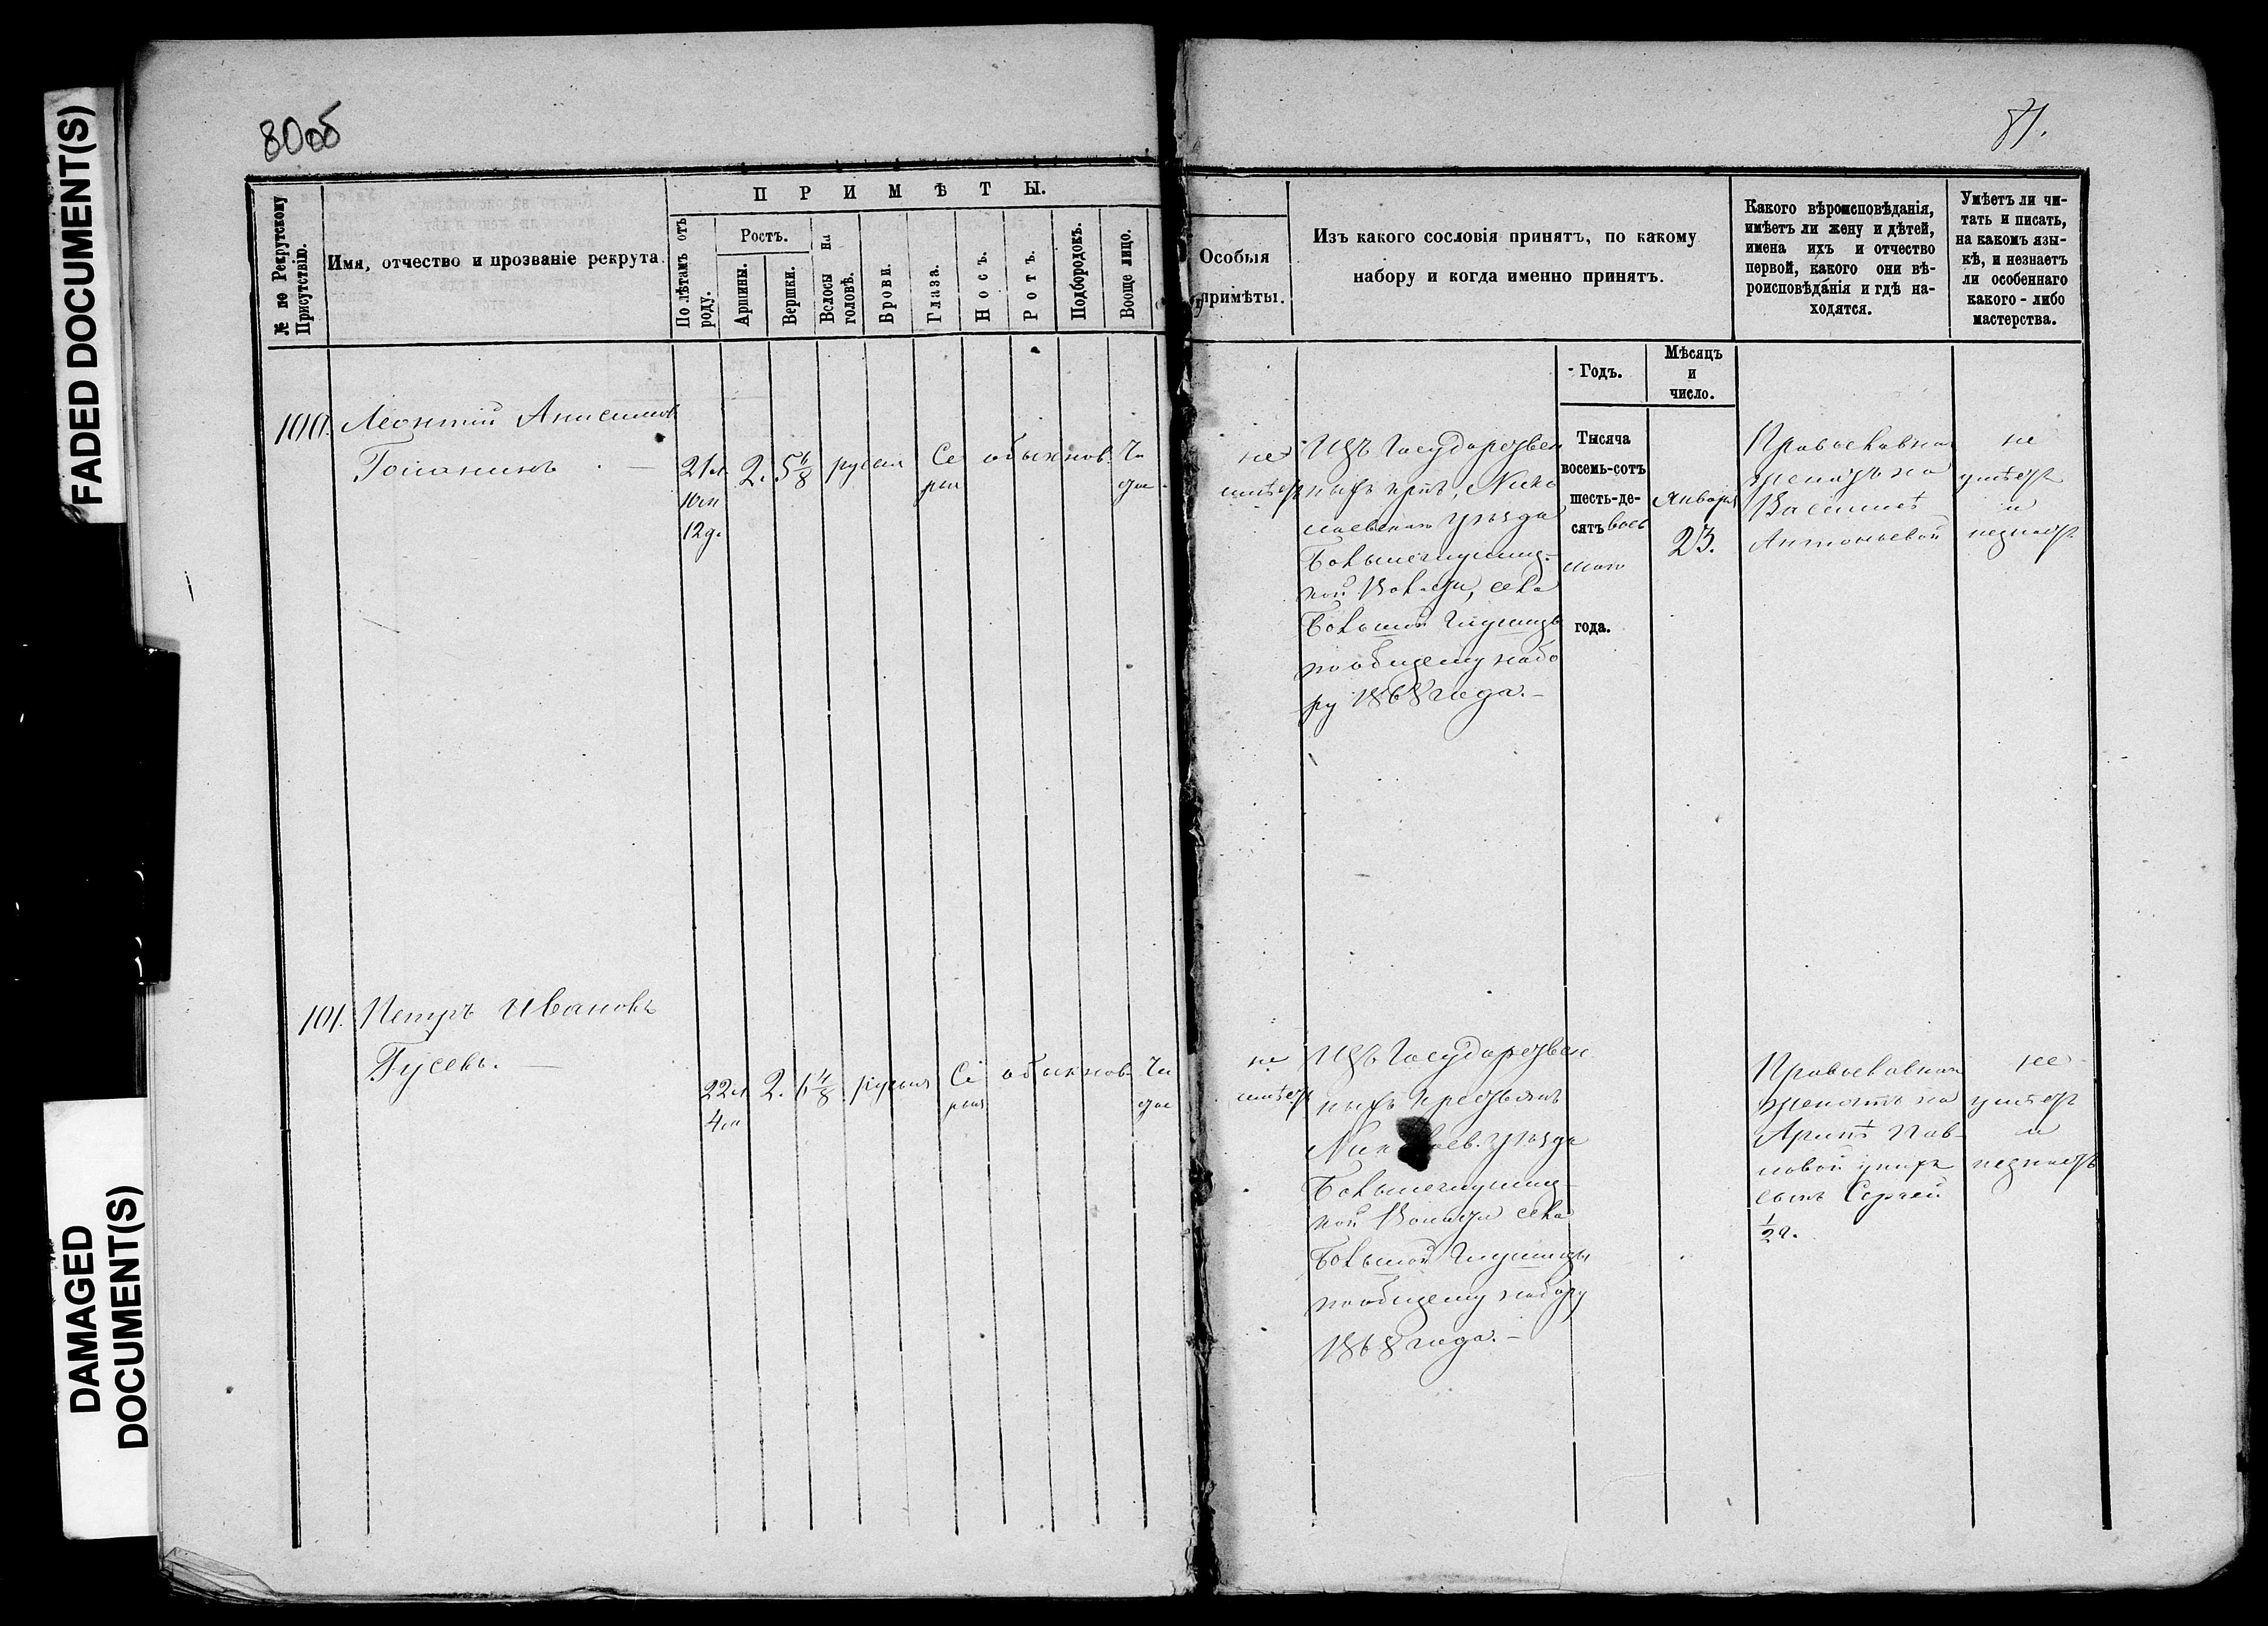 FADED DOCUMENT(S)
DAMAGED
DOCUMENT(S)
80об
81.
№ по Рекрутскому Присутствію.
Имя, отчество и прозваніе рекрута.
ПРИМѢТЫ.
По лѣтамъ отъ роду.
Ростъ.
Аршины.
Вершки.
Волосы на головѣ.
Брови.
Глаза.
Носъ.
Ротъ.
Подбородокъ.
Вообще лицо.
Особыя
примѣты.
Изъ какого сословія принятъ, по какому
набору и когда именно принятъ.
Какого вѣроисповѣданія,
имѣетъ ли жену и дѣтей,
имена ихъ и отчество
первой, какого они вѣ-
роисповѣданія и гдѣ на-
ходятся.
Умѣетъ ли чи-
тать и писать,
на какомъ язы-
кѣ, и незнаетъ
ли особеннаго
какого-либо
мастерства.
Годъ.
Мѣсяцъ
и
число.
100. Леонтій Анисимовъ
21 л
10 м
12 д.
2. 5 6/8 русыя Се
рыя
обыкнов. Чи
стое
не
имѣетъ
Изъ Государствен
ныхъ крт, Нико
лаевскаго уѣзда
Большеглушиц-
кой Волости, села
Большой Глушицы
по общему набо
ру 1868 года.
Тысяча
восемь-сотъ
шесть-де-
сятъ вось
маго
года.
Января
23.
Православнаго
женатъ на
Васините
Антоньевой
не
умѣетъ
и
незнаетъ
101. Петръ Ивановъ
Гусевъ.
22 л
4 м
2. 6 4/8 русыя Се
рыя
обыкнов. Чи
стое
не
имѣетъ
Изъ Государствен
ныхъ крестьянъ
уѣзда
Большеглушиц-
кой Волости села
Большой Глушицы
по общему набору
1868 года.
Православнаго
женатъ на
Аринѣ Пав-
ловой у нихъ
сынъ Сергей
1/2 г.
не
умѣетъ
и
незнаетъ